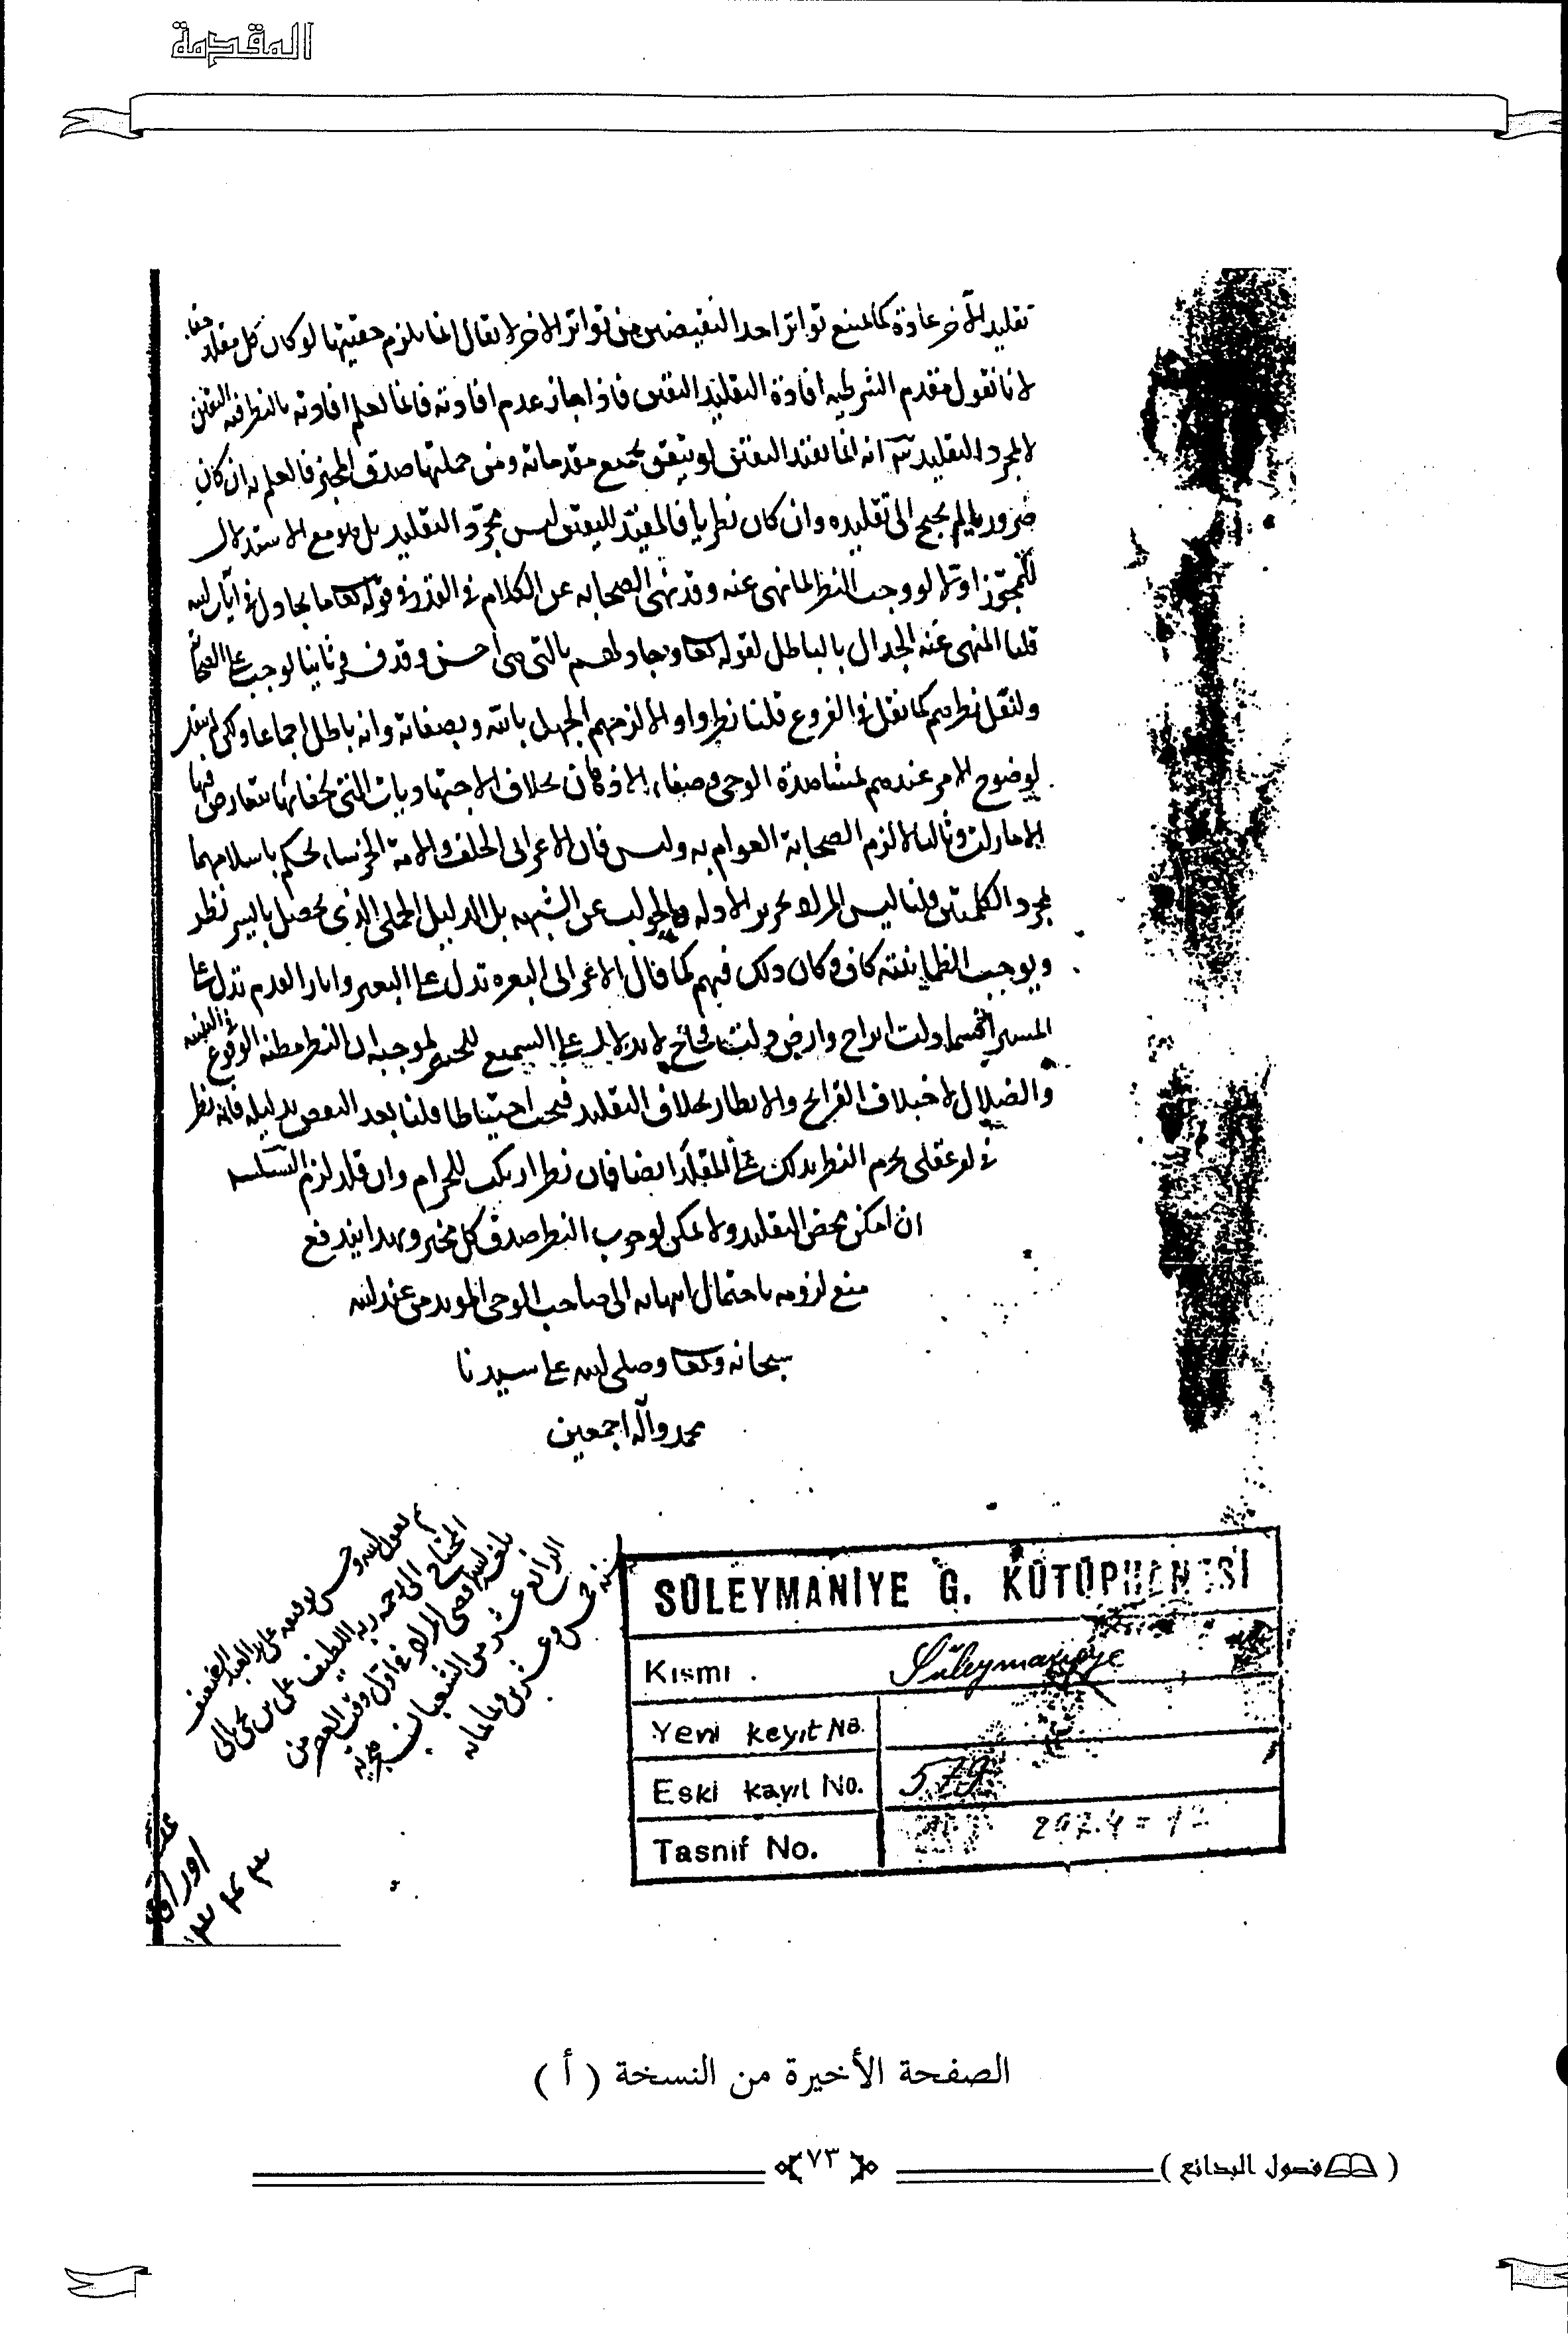 المقدمة
تقليد الآخر عادة كما امتنع تواتر احد النقيضين من تواتر الاخر لا يقال انما يلزم حقيتهما لو كان كل مقلد حقا
لانا نقول مقدم الشرطية افادة التقليد اليقين فاذا جاز عدم افادته فانما لعلم افادته بالنظر فيه اليقين
لا بمجرد التقليد انه انما يفيد اليقين لو تيقن بجميع مقدماته ومن جملتها صدق المخبر فالعلم به ان كان
ضروريا لم يحتج الى تقليده وان كان نظريا فالمفيد لليقين ليس مجرد التقليد بل هو مع الاستدلال
للمجوز اولا لو وجب النظر لما نهى عنه وقد نهى الصحابه عن الكلام في القدر وفي قوله تعالى ما يجادل في آيات الله
قلنا المنهى عنه الجدال بالباطل لقوله تعالى وجادلهم بالتى هى احسن وقد وثانيا لوجب على الصحابة
ولنقل نظرهم كما نقل في الفروع قلنا نظروا والا لزم الجهل بالله وبصفاته وانه باطل اجماعا ولكن لم ينقل
لوضوح الامر عندهم لمشاهدة الوحى وصفاء الاذهان بخلاف الاجتهاديات التى لخفائها يتعارض فيها
الامارات وثالثا لالزم الصحابة العوام به وليس فان الاعرابى الجلف والامة الخرساء يحكم باسلامهما
بمجرد الكلمتين قلنا ليس المراد تحرير الادلة والجواب عن الشبهه بل الدليل الجملى الذى يحصل بايسر نظر
ويوجب الطمانينة كاف وكان ذلك فيهم كما قال الاعرابى البعره تدل على البعير واثار القدم تدل على
المسير افسماء ذات ابراج وارض ذات فجاج لا يدلان على السميع لموجبه ان النظر مظنة الوقوع في الشبهة
والضلال لاختلاف القرائح والانظار بخلاف التقليد فيجب احتياطا قلنا بعد النقض بدليله فانه نظر
في امر عقلى يحرم النظر بذلك على المقلد ايضا فان نظر ارتكب الحرام وان قلد لزم التسلسل
ان امكن بمحض التقليد ولا يمكن لوجوب النظر صدق كل مخبر وبهذا يندفع
منع لزومه باحتمال انتهائه الى صاحب الوحى المويد من عند الله
سبحانه وتعالى وصلى الله على سيدنا
محمد وآله اجمعين
تم بعون الله وحسن توفيقه على يد العبد الضعيف
المحتاج الى رحمة ربه اللطيف على بن يحيى بالى
بلغه الله اقصى المراد في اول وقت العصر من
الرابع عشر من الشعبان
سنه خمس وعشرين وثمانمائه
اوراق
٣٤٣
SÜLEYMANİYE G. KÜTÜPHANESİ
Kısmı . Süleymaniye
Yeni keyıt No.
Eski kayıt No. 579
Tasnif No. 297.4 = 1
الصفحة الأخيرة من النسخة ( أ )
( فصول البدائع ) ٧٣